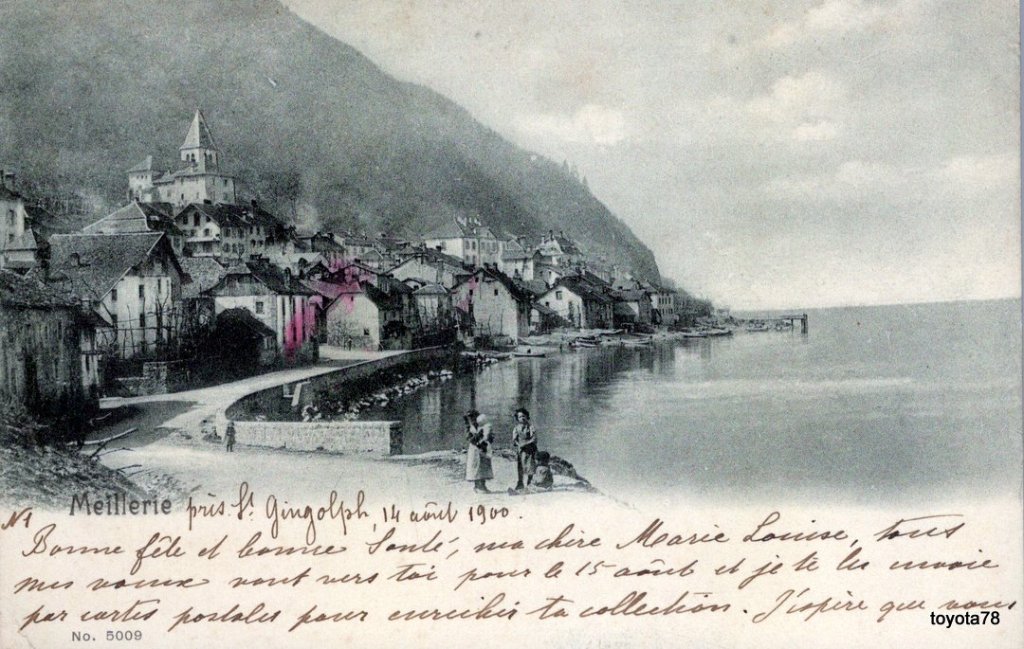 Meillerie près St. Gingolph, 14 août 1900.
N1
Bonne fête et bonne Santé, ma chère Marie Louise, tous
mes voeux vont vers toi pour le 15 août et je te les envoie
par cartes postales pour enrichir ta collection. J'espère que vous
toyota78
No. 5009